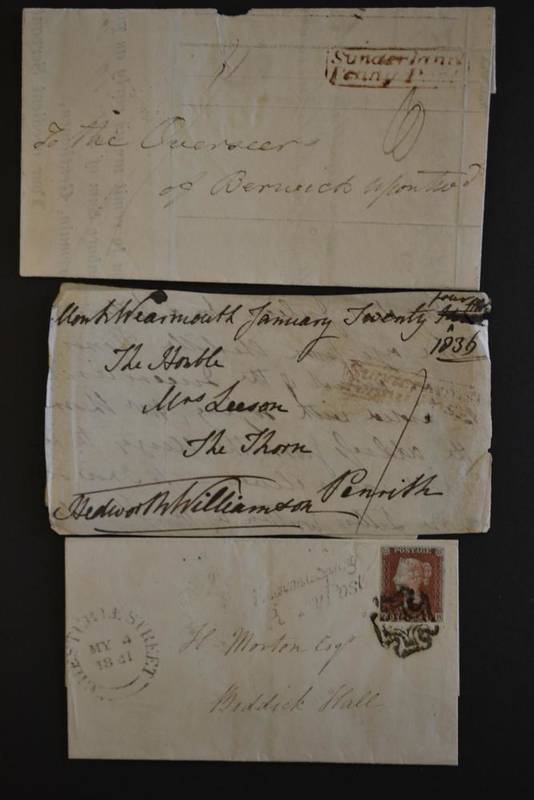 Sunderland
Penny Post
To the Overseers
of Berwick upon Twd
6
Monk Wearmouth January Twenty four
1836
The Honble
Mrs Leeson
The Thorn
Penrith
Hedworth Williamson
Sunderland
CHESTER LE STREET
MY 4
1841
POSTAGE
H. Morton Esqr
Biddick Hall